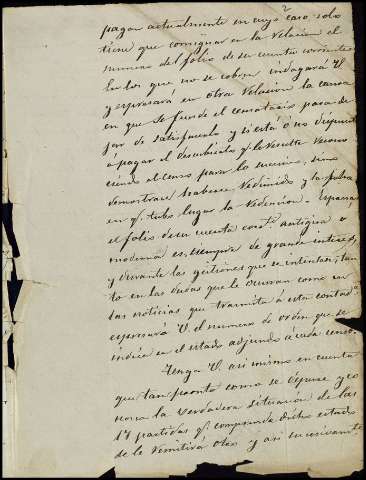 pagan actualmente en cuyo caso solo
tiene que consignar en la Relacion el
numero del folio de su cuenta corriente
En los que no se cobren indagará V.
y espresará en otra relacion la causa
en que se funde el censatario para de
jar de satisfacerlo y si está ó no dispuesto
á pagar el descubierto q.e le resulte recono
ciendo el censo para lo sucesivo, sino
demostrare haberse redimido y la fecha
en q.e tubo lugar la redencion. Espresar
el folio de su cuenta corr.te antigua o
moderna es siempre de grande interes,
y durante las gestiones que se intenten, tan
to en las dudas que le ocurran como en
las noticias que transmita á esta contad.a
espresará V. el numero de orden que se
indica en el estado adjunto á cada censo.
Tenga V. asi mismo en cuenta
que tan pronto como se depure y co
nosca la verdadera situacion de las
17 partidas q.e comprende dicho estado
se le remitirá otro y asi sucesivamte